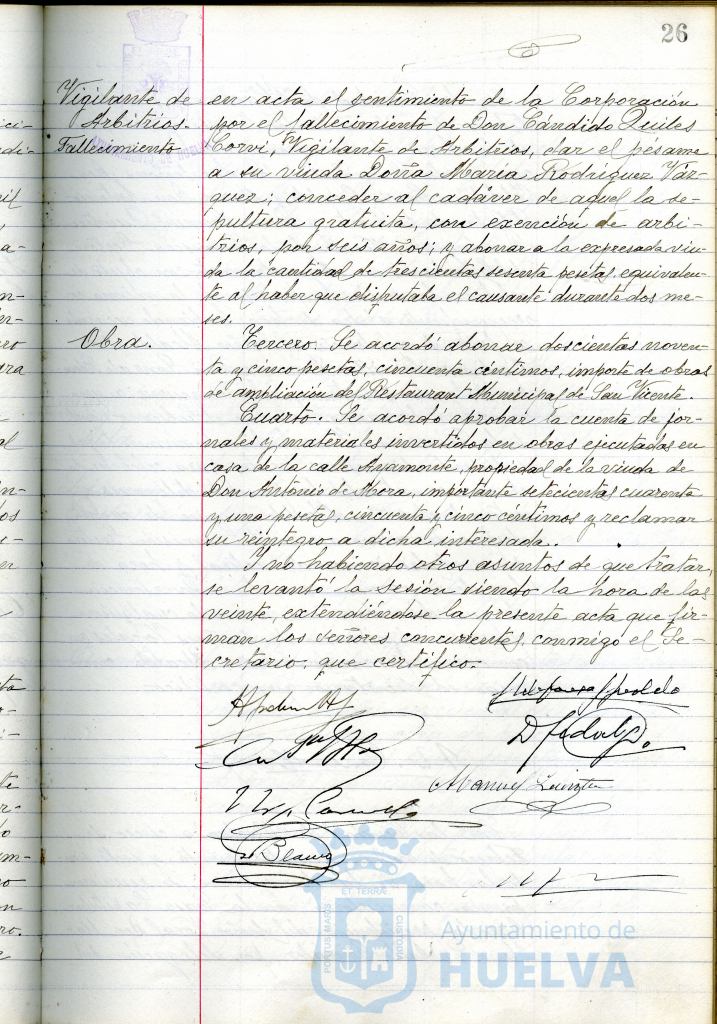 26
Vigilante de
Arbitrios.
Fallecimiento
en acta el sentimiento de la Corporación
por el fallecimiento de Don Cándido Quiles
Corvi, Vigilante de Arbitrios, dar el pésame
a su viuda Doña María Rodríguez Váz-
quez; conceder al cadáver de aquel la se-
pultura gratuita, con exención de arbi-
trios, por seis años; y abonar a la expresada viu-
da la cantidad de trescientas sesenta pesetas, equivalen-
te al haber que disfrutaba el causante durante dos me-
ses.
Obra.
Tercero. Se acordó abonar doscientas noven-
ta y cinco pesetas, cincuenta céntimos, importe de obras
de ampliación del Restaurant Municipal de San Vicente.
Cuarto. Se acordó aprobar la cuenta de jor-
nales y materiales invertidos en obras ejecutadas en
casa de la calle Ayamonte, propiedad de la viuda de
Don Antonio de Mora, importante setecientas cuarenta
y una pesetas, cincuenta y cinco céntimos y reclamar
su reintegro a dicha interesada.
Y no habiendo otros asuntos de que tratar,
se levantó la sesión siendo la hora de las
veinte, extendiéndose la presente acta que fir-
man los señores concurrentes, conmigo el Se-
cretario, que certifico.
Blanco
PORTUS MARIS
ET TERRAE
CUSTODIA
Ayuntamiento de
HUELVA